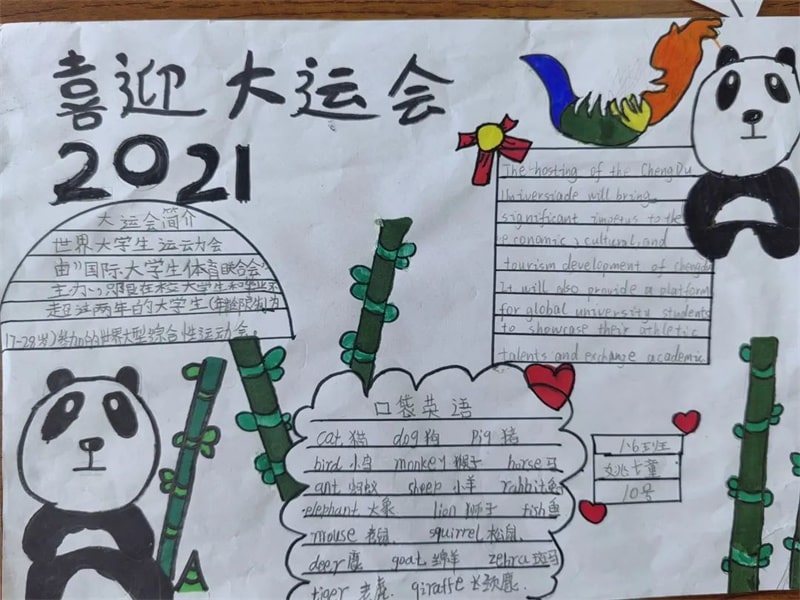 喜迎大运会
2021
大运会简介
世界大学生运动会
由"国际大学生体育联合会"
主办,只限在校大学生和毕业不
超过两年的大学生(年龄限制为
17-28岁)参加的世界大型综合性运动会。
The hosting of the ChengDu
Universiade will bring
significant impetus to the
economic, cultural, and
tourism development of chengdu
It will also provide a platform
for global university students
to showcase their athletic
talents and exchange academic
口袋英语
cat 猫 dog 狗 pig 猪
bird 小鸟 monkey 猴子 horse 马
ant 蚂蚁 sheep 小羊 rabbit
elephant 大象 lion 狮子 fish 鱼
mouse 老鼠. squirrel 松鼠.
deer 鹿 goat 绵羊 zebra 斑马
tiger 老虎. giraffe 长颈鹿.
1.6班
姚
10号